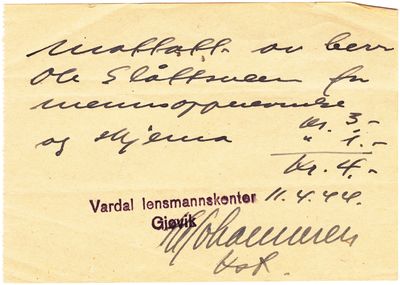 Mottatt av herr
Ole Slåttsveen for
mennsoppnevnelse
kr. 3,-
og skjema " 1.-
Kr. 4,-
11.4.44.
Vardal lensmannskontor
Gjøvik
Johannesen